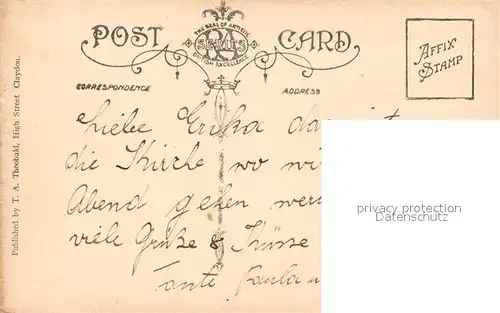 POST CARD
THE SEAL OF ARTISTIC
RA
SERIES
BRITISH EXCELLENCE
AFFIX
STAMP
CORRESPONDENCE
ADDRESS
Published by T. A. Theobald, High Street Claydon.
Liebe Erika das ist
die Kirche wo wi
Abend gehen wer
viele Grüße & Küsse
Tante Paula u
privacy protection
Datenschutz